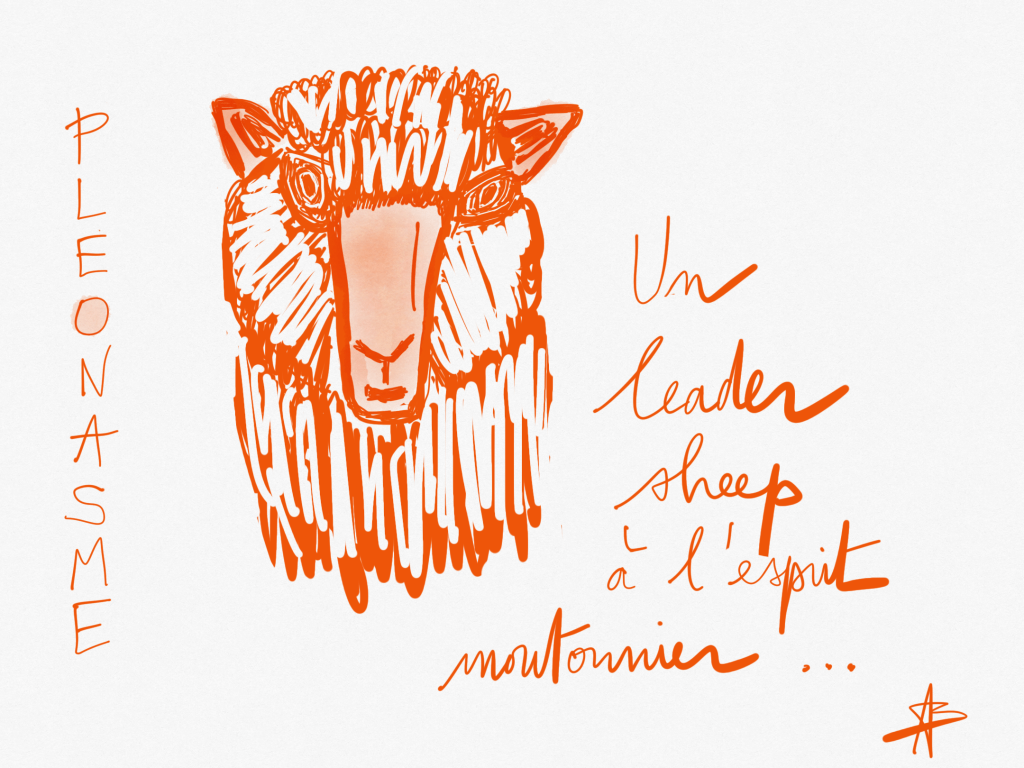 PLEONASME
Un
leader
sheep
à l'esprit
moutonnier ...
AB